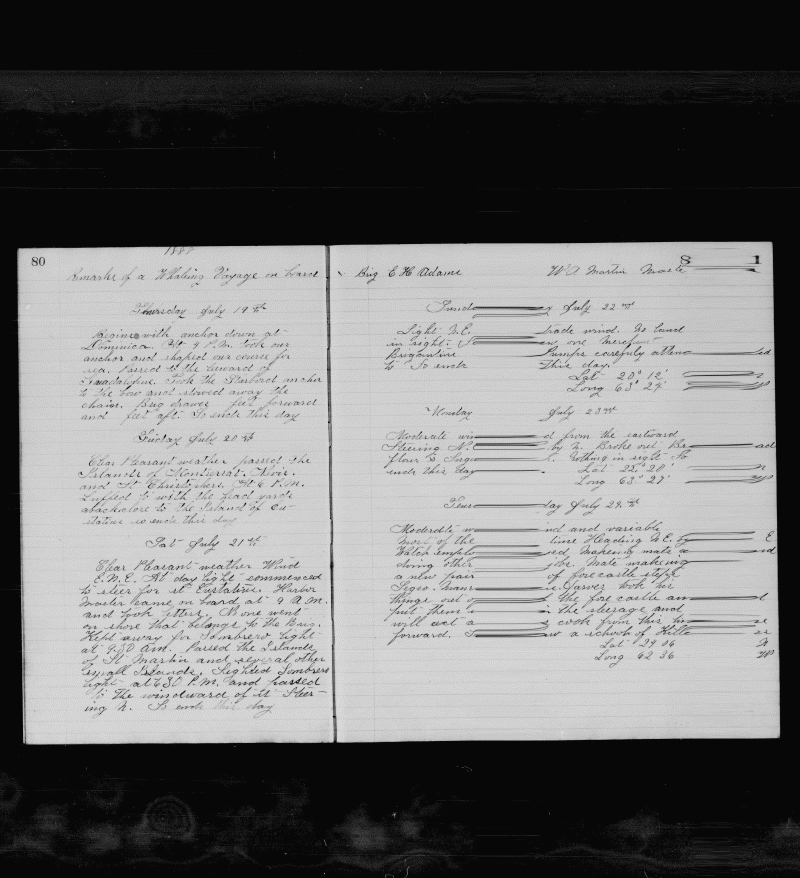 80
1888
Remarks of a Whaling Voyage on board
Thursday July 19th
Begins with anchor down at
Dominica. At 9 P.M. took our
anchor and shaped our course for
sea. Passed to the leward of
Guadaloupe. Took the Starboard anchor
to the bow and stowed away the
chain. Brig draws feet forward
and feet aft. So ends this day
Friday July 20th
Clear Pleasant weather passed the
Islands of Monserat. Nevis.
and St Christophers. At 6 P.M.
Luffed to with the head yards
aback close to the Island of Eu-
statia so ends this day
Sat July 21st
Clear Pleasant weather Wind
E.N.E. At day light commenced
to steer for St Eustatia. Harbor
Master came on board at 9 A.M.
and took letters. None went
on shore that belongs to the Brig.
Kept away for Sombrero light
at 9.30 A.M. Passed the Islands
of St Martin and several other
small Islands. Sighted Sombrero
light at 6 30 P.M. and passed
to the windward of it Steer-
ing N. So ends this day
81
Brig E H Adams W A Martin Master
Sund y July 22nd
Light N.E. trade wind. No land
in sight. en one Merchant
Brigantine Pumps carefuly attend ed
to So ends This day.
Lat 20° 12' N
Long 63° 24' W
Monday July 23rd
Moderate win d from the eastward
Steering N. by N. Broke out Br ead
flour & Suga Nothing in sight So
ends this day
Lat 22° 20' N
Long 63° 27' W
day July 24th
Moderate w ind and variable
Most of the time Heading N.E. by E
Watch emplo yed making mats and
doing other jobs. Mate making
a new pair of forecastle steps
Jarves took his
things out of the fore castle and
put them in the steerage and
will act as cook from this time
forward. Saw a school of Kille ers
Lat 24 04 N
Long 62 36 W